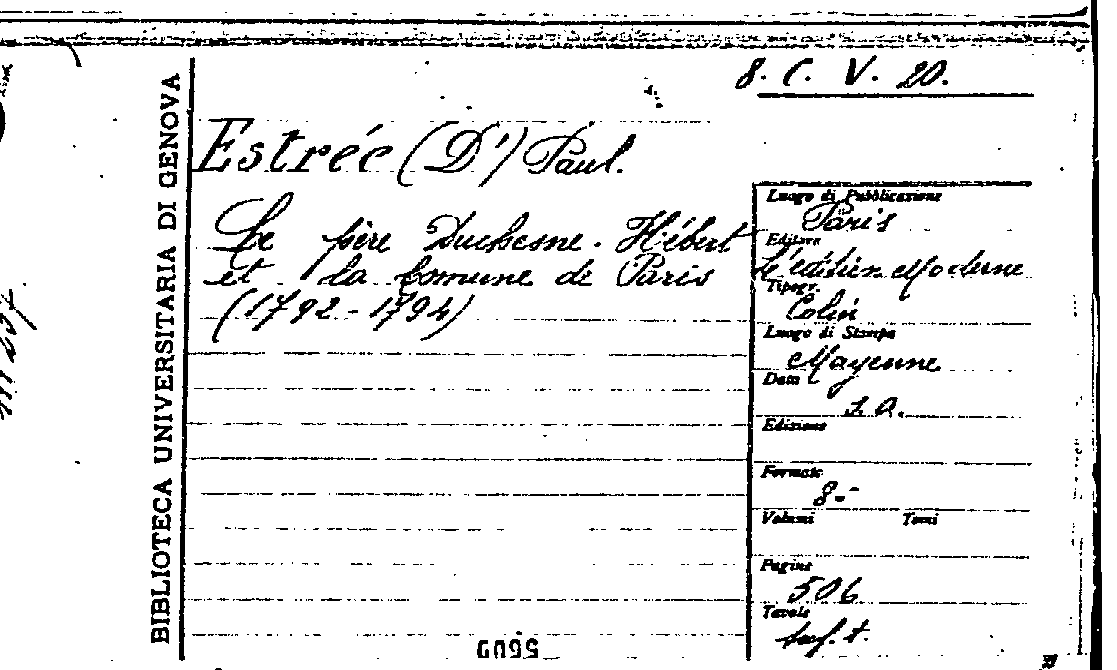 8. C. V. 20.
BIBLIOTECA UNIVERSITARIA DI GENOVA
Estrée (D') Paul.
Le père Duchesne. Hébert
et la Comune de Paris
(1792-1794)
Luogo di Pubblicazione
Paris
Editore
L'édition Moderne
Tipogr.
Colin
Luogo di Stampa
Mayenne
Data
s. a.
Edizione
Formato
8-
Volumi Tomi
Pagine
506
Tavole